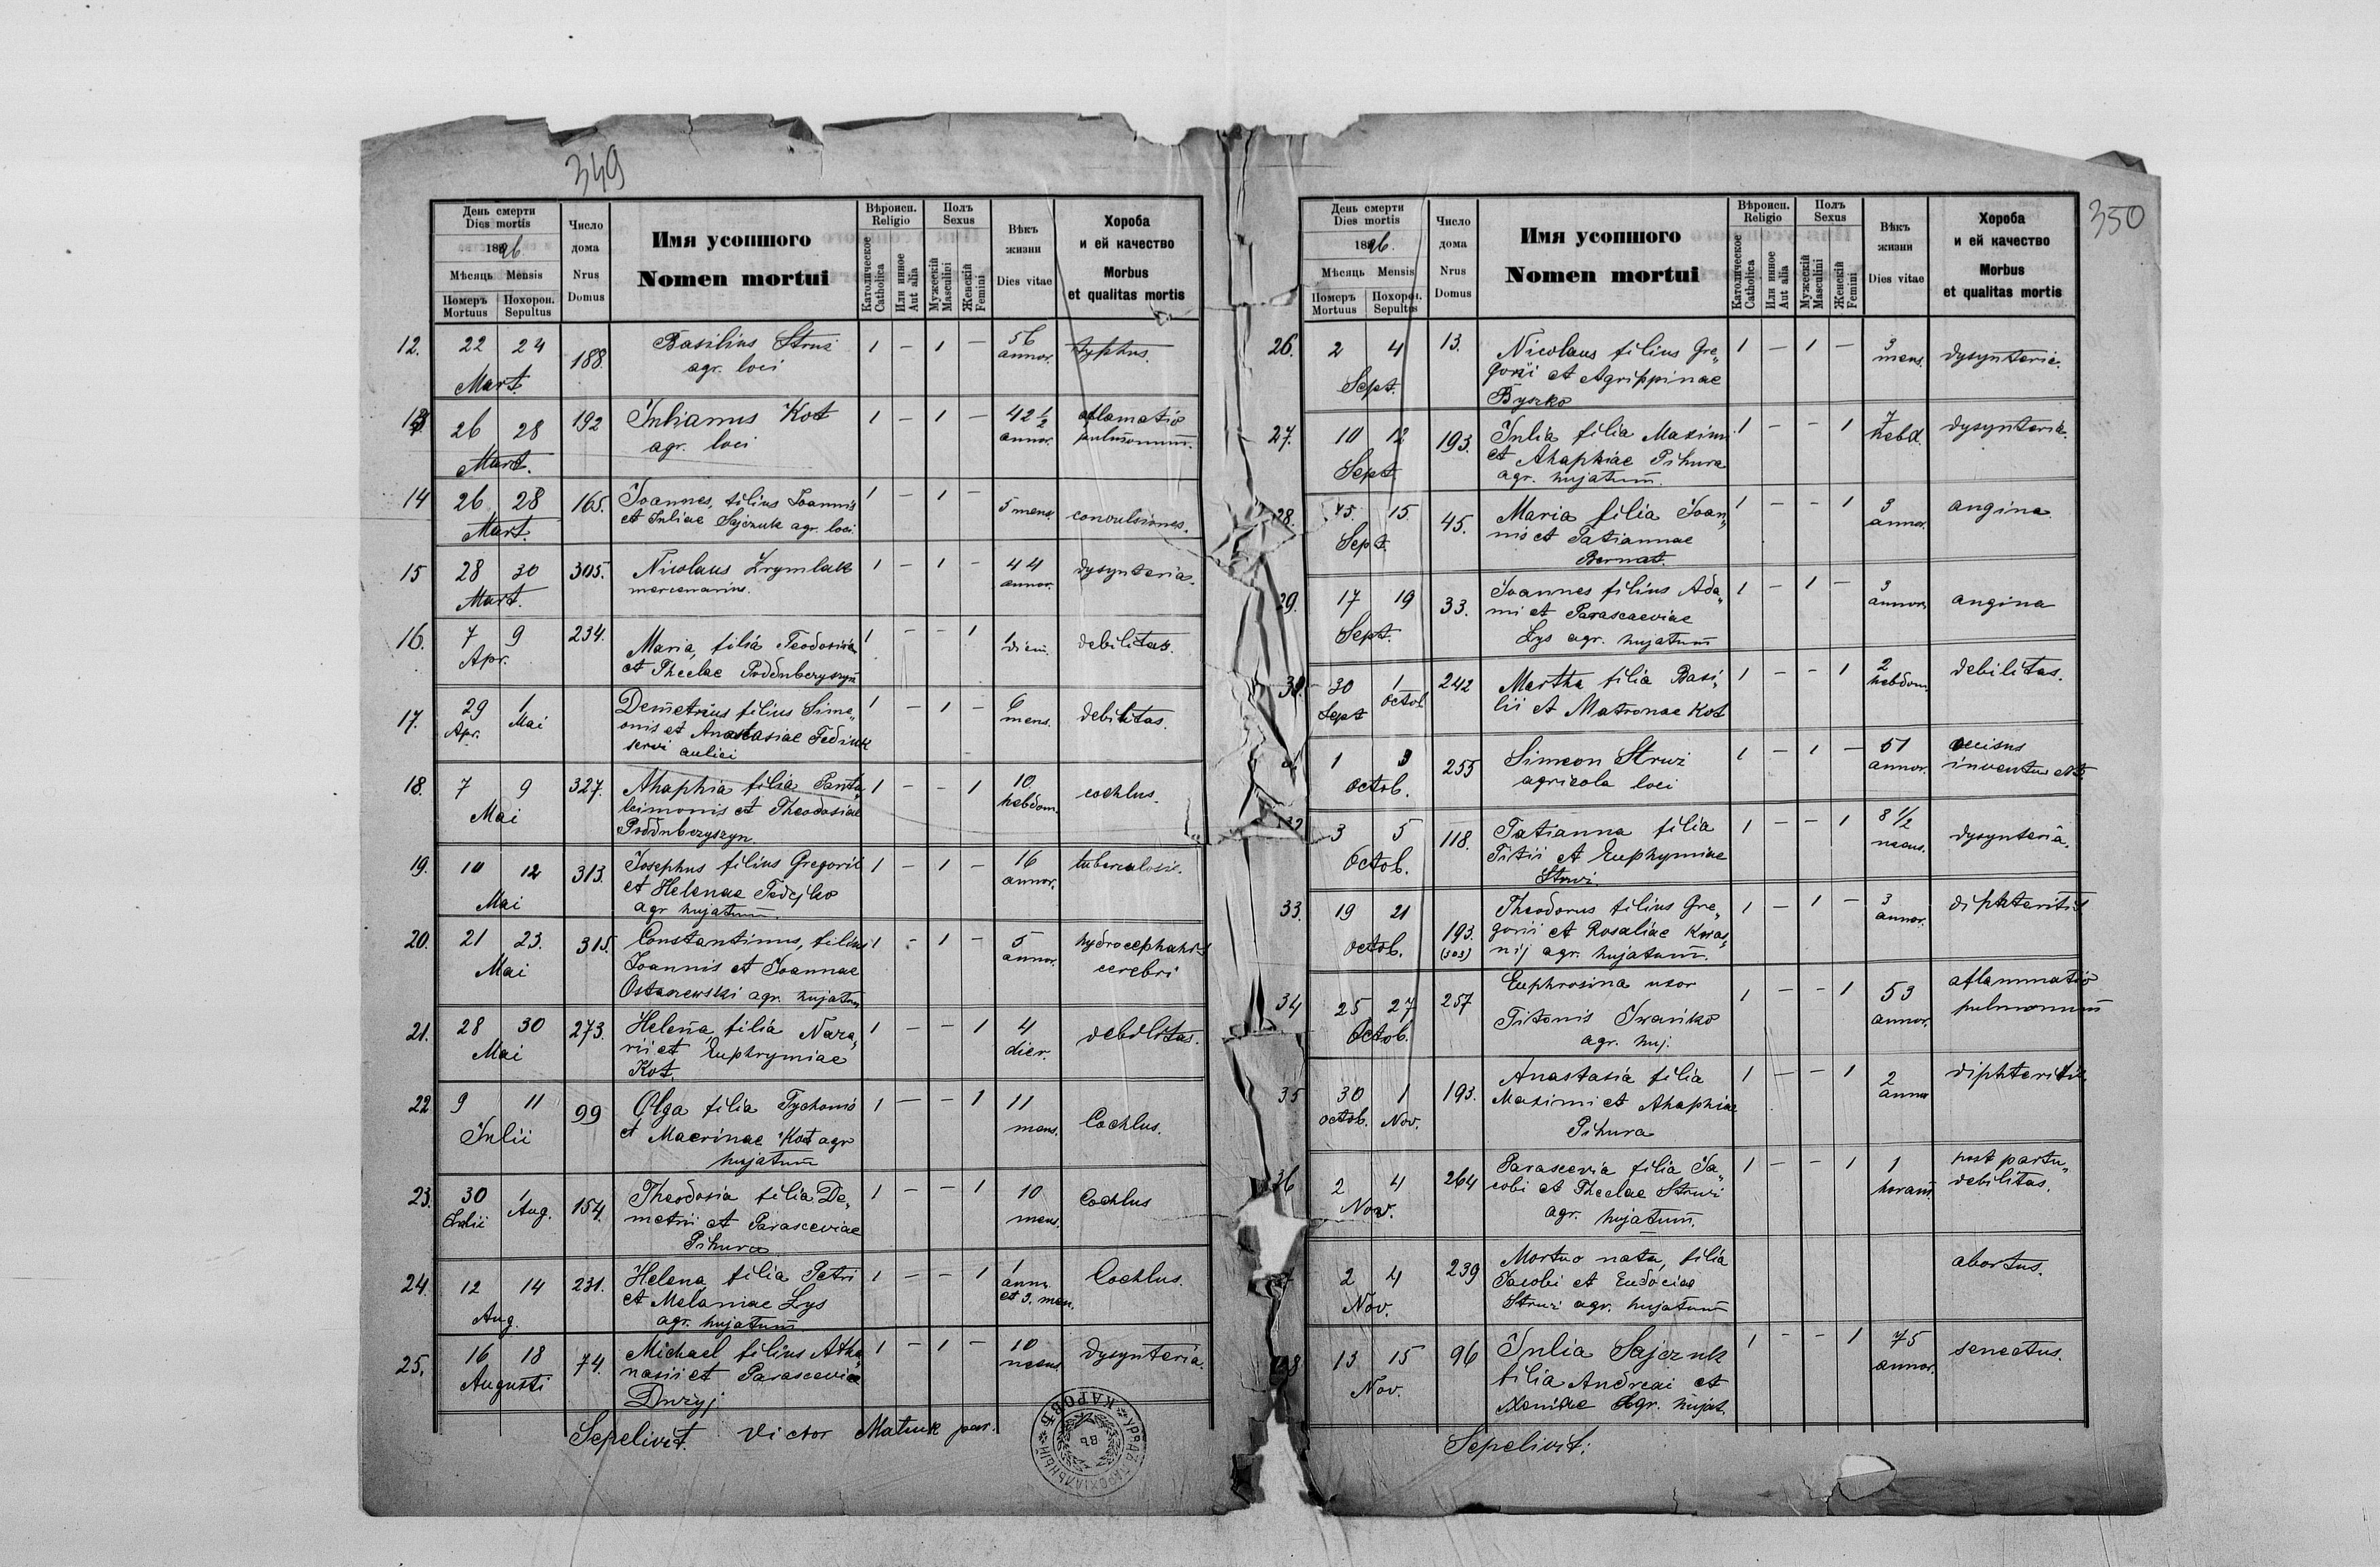 349
День смерти
Dies mortis
1896
Мѣсяць Mensis
Померъ Mortuus
Похорон. Sepultus
Число дома
Nrus Domus
Имя усопшого
Nomen mortui
Вѣроисп.
Religio
Католическое Catholica
Или инное Aut alia
Полъ
Sexus
Мужескій Masculini
Женскій Femini
Вѣкъ жизни
Dies vitae
Хороба
и ей качество
Morbus
et qualitas mortis
12. 22 24 188. Basilius Struż 1 – 1 – 56 annor. typhus.
Mart. agr. loci
13 26 28 192 Julianus Kot 1 – 1 – 42 1/2 annor. aflamatio
Mart. agr. loci pulmonum.
14 26 28 165. Joannes, filius Joannis 1 – 1 – 5 mens. convulsiones.
Mart. et Juliae Sajczuk agr. loci
15 28 30 305. Nicolaus Zrymlak 1 – 1 – 44 annor. dysynteria.
Mart. mercenarius.
16. 7 9 234. Maria, filia Teodosii 1 – – 1 1 diem. debilitas.
Apr. et Theclae Poddubczyszyn
17. 29 1 Demetrius filius Sime„ 1 – 1 – 6 mens. debilitas.
Apr. Mai onis et Anastasiae Fediuk
servi aulici
18. 7 9 327. Ahaphia filia Panta„ 1 – – 1 10. hebdom. cochlus.
Mai leimonis et Theodosiae
Poddubczyszyn.
19. 10 12 313. Josephus filius Gregorii 1 – 1 – 16 annor. tuberculosis.
Mai et Helenae Fedejko
agr hujatum.
20. 21 23. 315. Constantinus, filius 1 – 1 – 5 annor. hydrocephalus
Mai Joannis et Joannae cerebri
Ostaszewski agr. hujatum
21. 28 30 273. Helena, filia Naza„ 1 – – 1 4 dier. debilitas.
Mai rii et Euphrymiae
Kot.
22 9 11 99 Olga filia Tychonis 1 – – 1 11 mens. Cochlus.
Julii et Macrinae Kot agr
hujatum
23. 30 1 154. Theodosia filia De„ 1 – – 1 10 mens. Cochlus
Julii Aug. metrii et Parasceviae
Pihura
24. 12 14 231. Helena filia Petri 1 – – 1 1 ann. et 3. men. Cochlus.
Aug. et Melaniae Łys
agr. hujatum
25. 16 18 74. Michael filius Atha„ 1 – 1 – 10 mens. dysynteria.
Augusti nasii et Parasceviae
Duzyj
Sepelivit. Victor Matiuk par.
350
День смерти
Dies mortis
1896.
Мѣсяць Mensis
Померъ Mortuus
Похорон. Sepultus
Число дома
Nrus Domus
Имя усопшого
Nomen mortui
Вѣроисп.
Religio
Католическое Catholica
Или инное Aut alia
Полъ
Sexus
Мужескій Masculini
Женскій Femini
Вѣкъ жизни
Dies vitae
Хороба
и ей качество
Morbus
et qualitas mortis
26. 2 4 13. Nicolaus filius Gre„ 1 – 1 – 3 mens. dysynteria.
Sept. gorii et Agrippinae
Byszko
27. 10 12 193. Julia filia Maximi 1 – – 1 7 hebd. dysynteria.
Sept. et Ahaphiae Pihura
agr. hujatum.
28. 15 45. Maria filia Joan„ 1 – – 1 3 annor. angina.
Sept. nis et Tatiannae
Bernat.
29. 17 19 33. Joannes filius Ada„ 1 – 1 – 3 annor. angina
Sept. mi et Parasceviae
Łys agr. hujatum
30. 30 1 242 Martha filia Basi„ 1 – – 1 2 hebdom. debilitas.
Sept Octob lii et Matronae Kot
1 3 255 Simeon Struż 1 – 1 – 51 annor. occisus
Octob. agricola loci inventus est
32 3 5 118. Tatianna filia 1 – – 1 8 1/2 mens. dysynteria.
Octob. Titii et Euphymiae
Struż.
33. 19 21 193. Theodorus filius Gre„ 1 – 1 – 3 annor. diphteritis
Octob. (303) gorii et Rosaliae Kwas„
nij agr. hujatum.
34 25 27 257 Euphrosina uxor 1 – – 1 53 annor. aflammatio
Octob. Titonis Iwańko pulmonum
agr. huj.
35 30 1 193. Anastasia filia 1 – – 1 2 annor diphteritis
Octob. Nov. Maximi et Ahaphiae
Pihura
36 2 4 264 Parascevia filia Ja„ 1 – – 1 1 horam post partu„
Nov. cobi et Theclae Struż debilitas.
agr. hujatum.
37 2 4 239 Mortuo nata, filia abortus.
Nov. Jacobi et Eudociae
Struż agr. hujatum
38 13 15 96 Julia Sajczuk 1 – – 1 75 annor. senectus.
Nov. filia Andreai et
Xeniae agr. hujat.
Sepelivit: